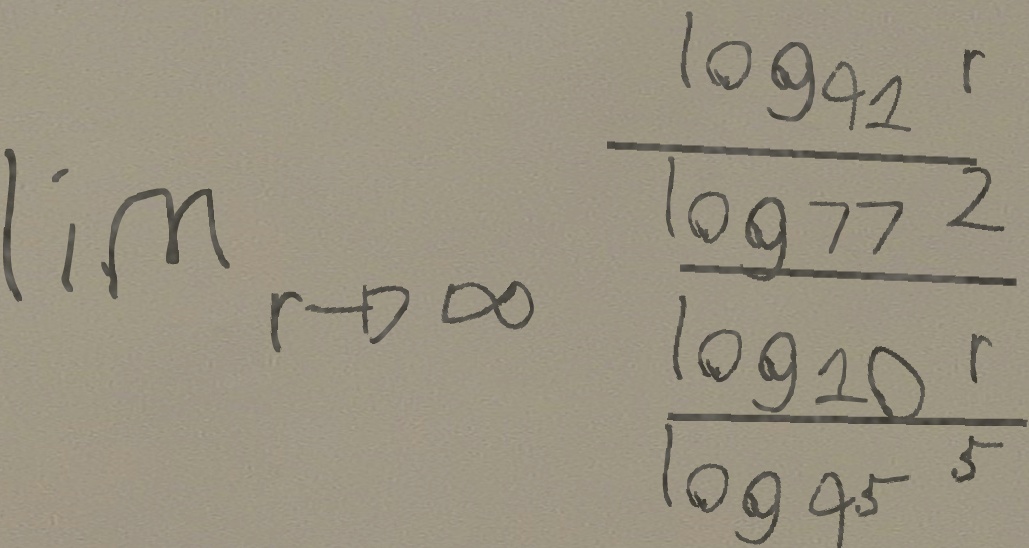 lim r→∞
log₉₁ r
log₇₇ 2
log₁₀ r
log₉₅ 5